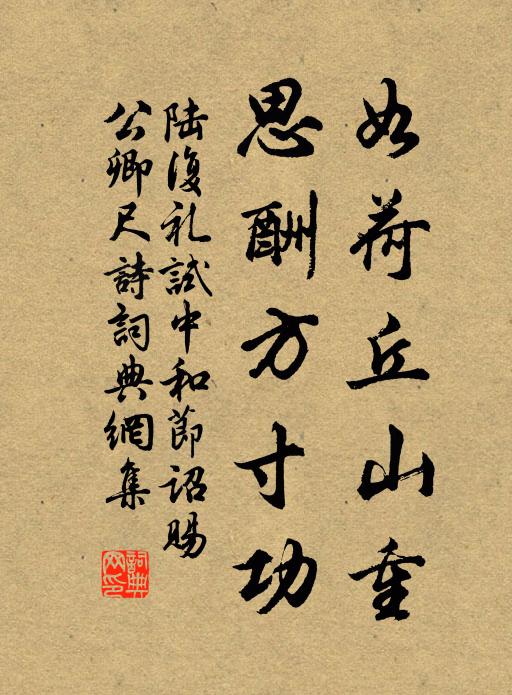 如荷丘山重
思酬方寸功
陆復礼試中和節詔賜
公卿尺詩詞典網集
詞典
网印